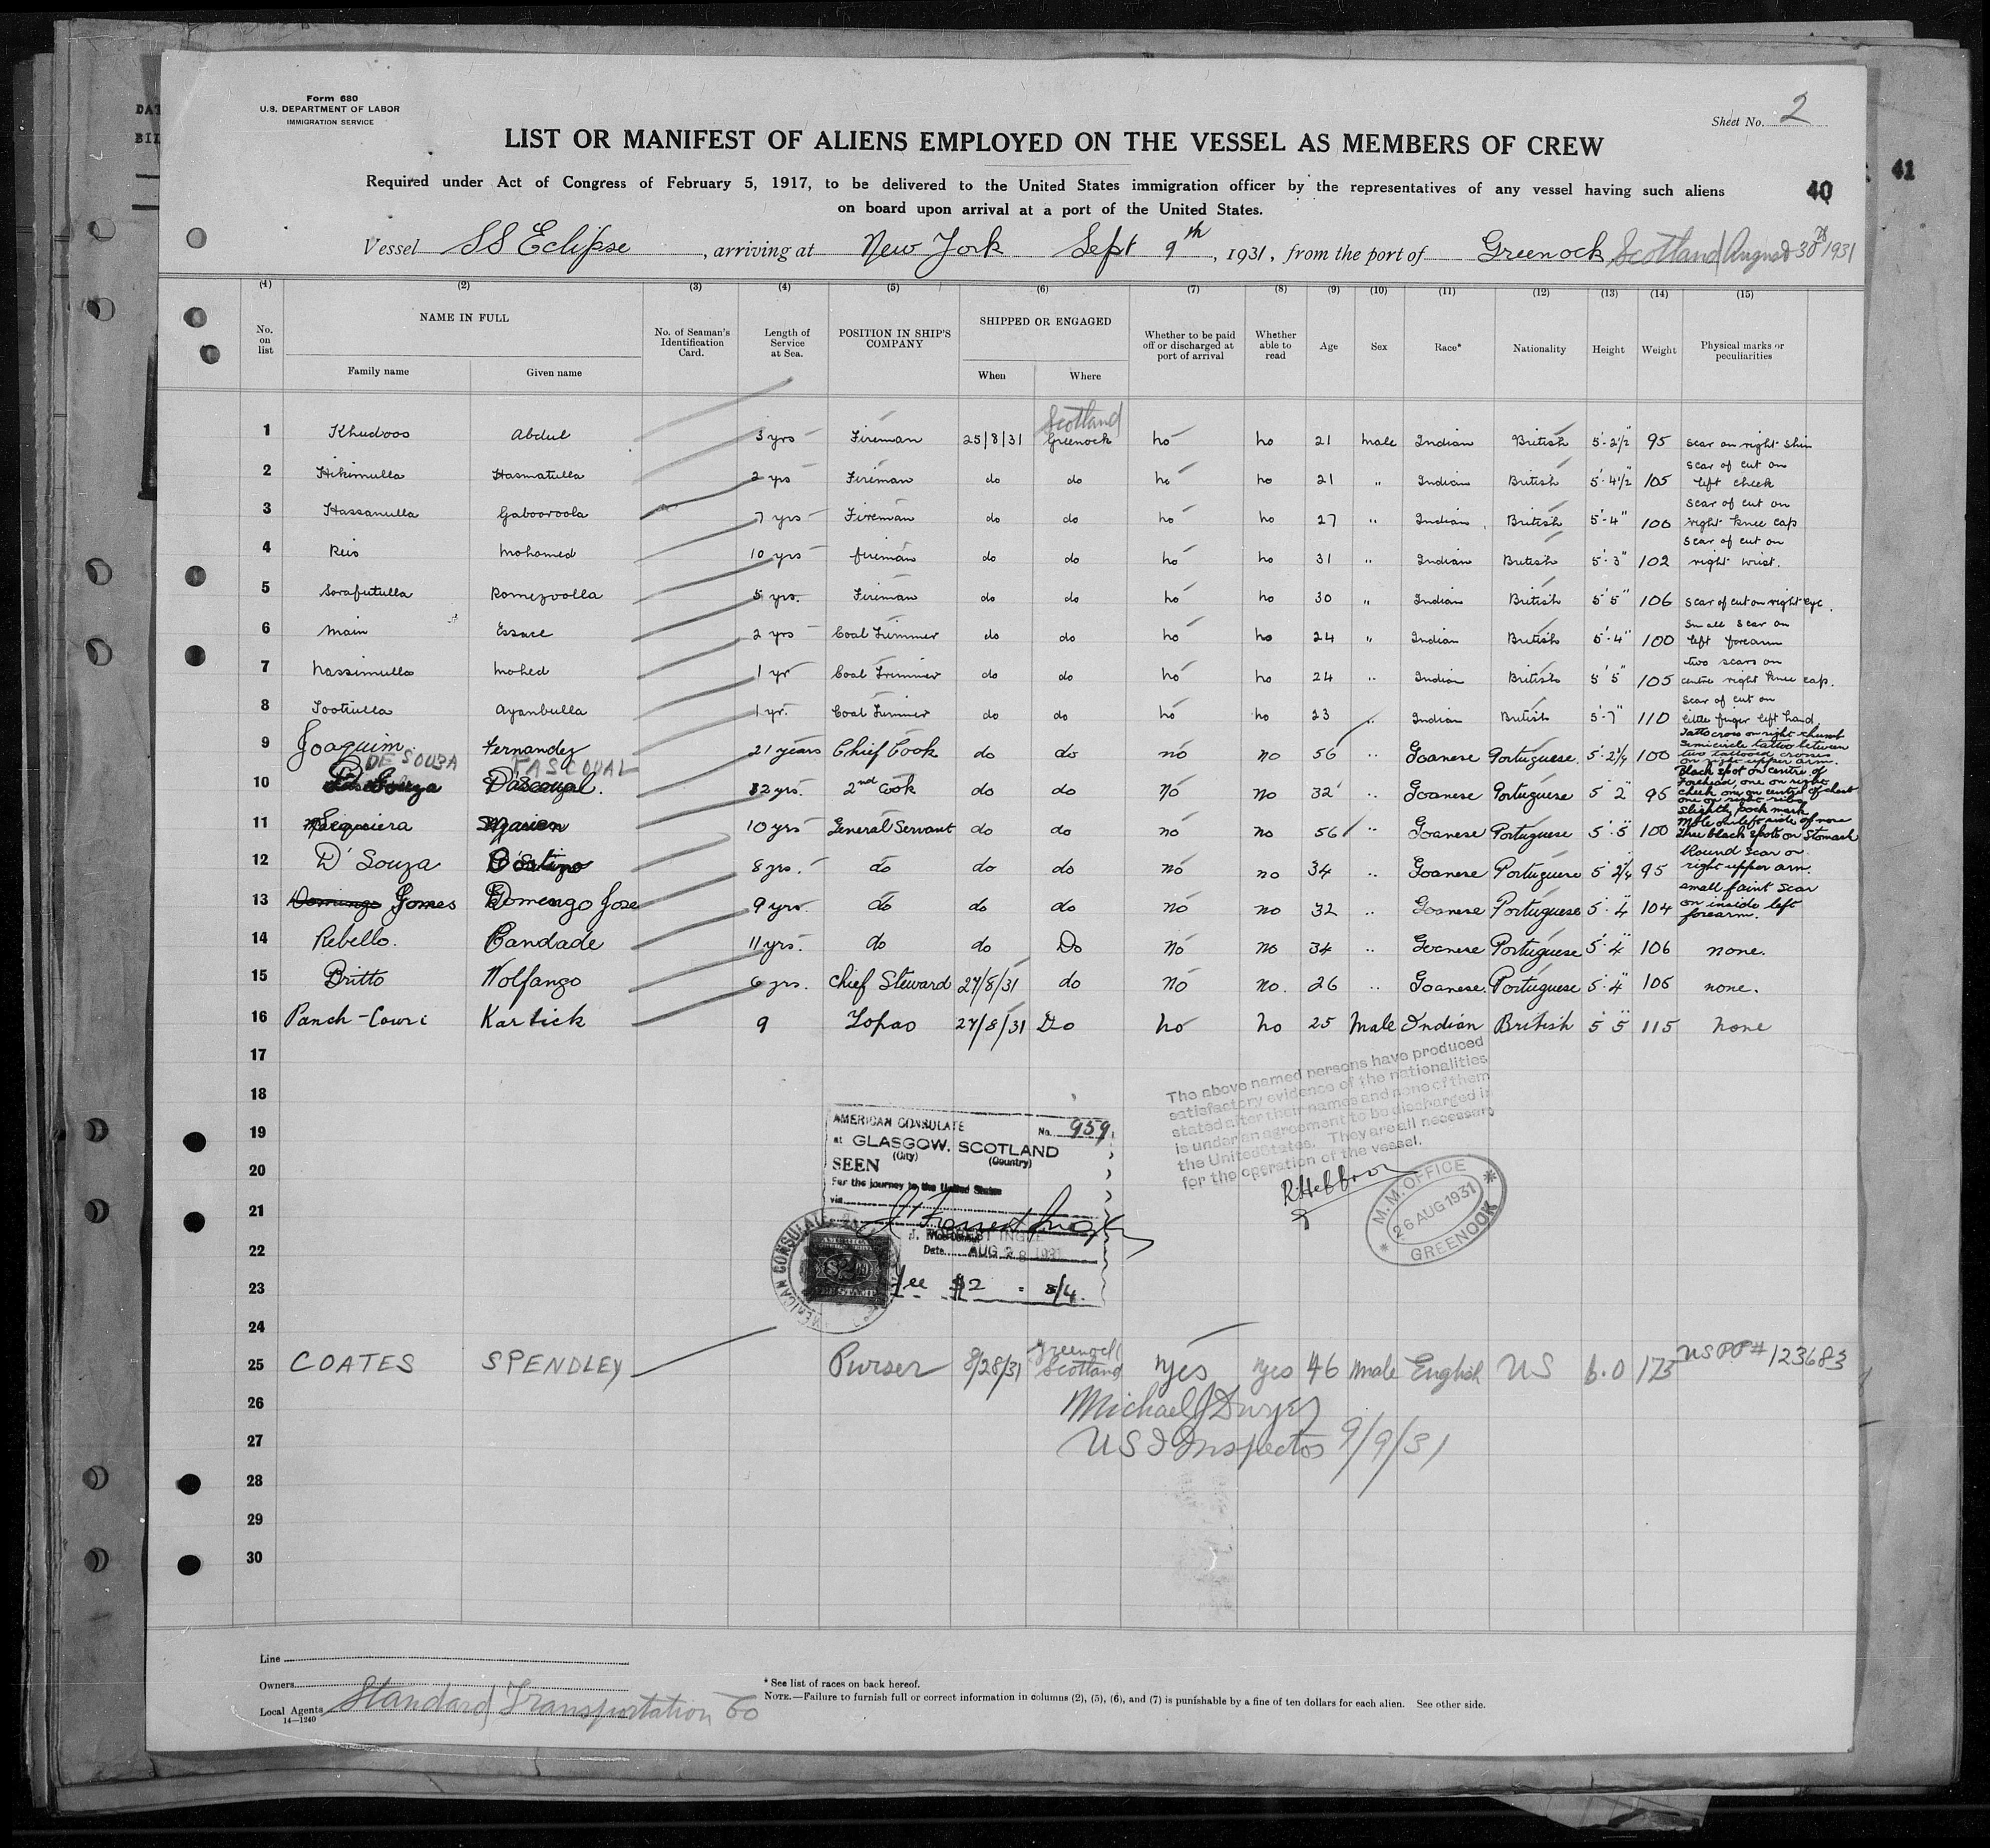 DAT
BIL
Form 680
U.S. DEPARTMENT OF LABOR
IMMIGRATION SERVICE
Sheet No. 2
LIST OR MANIFEST OF ALIENS EMPLOYED ON THE VESSEL AS MEMBERS OF CREW
41
Required under Act of Congress of February 5, 1917, to be delivered to the United States immigration officer by the representatives of any vessel having such aliens
40
on board upon arrival at a port of the United States.
Vessel SS Eclipse, arriving at New York Sept 9th, 1931, from the port of Greenock Scotland August 30th 1931
(1) (2) (3) (4) (5) (6) (7) (8) (9) (10) (11) (12) (13) (14) (15)
No. on list NAME IN FULL Family name Given name No. of Seaman's Identification Card. Length of Service at Sea. POSITION IN SHIP'S COMPANY SHIPPED OR ENGAGED When Where Whether to be paid off or discharged at port of arrival Whether able to read Age Sex Race* Nationality Height Weight Physical marks or peculiarities
Scotland
1 Khudoos Abdul 3 yrs Fireman 25/8/31 Greenock no no 21 male Indian British 5'-2½" 95 scar on right shin
2 Hikimulla Hasmatulla 2 yrs Fireman do do no no 21 " Indian British 5'-4½" 105 scar of cut on left cheek
3 Hassanulla Gabooroola 7 yrs Fireman do do no no 27 " Indian British 5'-4" 100 scar of cut on right knee cap
4 Reis Mohamed 10 yrs fireman do do no no 31 " Indian British 5'-3" 102 scar of cut on right wrist.
5 Sorafutulla Romezoolla 5 yrs. Fireman do do no no 30 " Indian British 5'5" 106 scar of cut on right eye.
6 Main Essace 2 yrs Coal Trimmer do do no no 24 " Indian British 5'-4" 100 small scar on left forearm
7 Nassimulla Mohed 1 yr Coal Trimmer do do no no 24 " Indian British 5'5" 105 two scars on centre right knee cap.
8 Sootiulla Ayanbulla 1 yr. Coal Trimmer do do no no 23 " Indian British 5'-7" 110 scar of cut on little finger left hand.
9 Joaquim Fernandez 21 years Chief Cook do do no no 56 " Goanese Portuguese 5'-2¼ 100 Tatto cross on right thumb Semicircle tattoo between two tattooed crosses on right upper arm.
DE SOUZA PASCOUAL
10 Pascoual. 32 yrs. 2nd Cook do do no no 32 " Goanese Portuguese 5 2" 95 Black spot on centre of Forehead, one on right cheek one on centre of chest one on right ribs slightly pock mark
11 10 yrs General Servant do do no no 56 " Goanese Portuguese 5'.5" 100 Mole on left side of nose three black spots on Stomach
12 D'Souza 8 yrs. do do do no no 34 " Goanese Portuguese 5' 2¼ 95 Round scar on right upper arm.
13 Domingo Gomes Domengo Jose 9 yrs. do do do no no 32 " Goanese Portuguese 5'.4" 104 small faint scar on inside left forearm.
14 Rebello. Candade 11 yrs. do do Do no no 34 " Goanese Portuguese 5'.4" 106 none.
15 Britto Wolfango 6 yrs. Chief Steward 27/8/31 do no no. 26 " Goanese. Portuguese 5'.4" 105 none.
16 Panch-Couri Kartick 9 Topas 27/8/31 Do no no 25 Male Indian British 5'5" 115 none
17
The above named persons have produced
satisfactory evidence of the nationalities
stated after their names and none of them
is under an agreement to be discharged in
the United States. They are all necessary
for the operation of the vessel.
R Hebbron
M.M. OFFICE
26 AUG 1931
GREENOCK
18
19
20
21
22
23
24
AMERICAN CONSULATE No. 959
at GLASGOW, SCOTLAND
(City) (Country)
SEEN
For the journey to the United States
via
J. FORREST INGLE
Date AUG 28 1931
AMERICAN CONSULATE
Fee $2 = 8/4.
25 COATES SPENDLEY Purser 8/28/31 Greenock Scotland yes yes 46 male English US 6.0 173 US PP # 123683
26 Michael J Dwyer
27 US I Inspector 9/9/31
28
29
30
Line
Owners
Local Agents Standard Transportation Co
14—1240
* See list of races on back hereof.
NOTE.—Failure to furnish full or correct information in columns (2), (5), (6), and (7) is punishable by a fine of ten dollars for each alien. See other side.